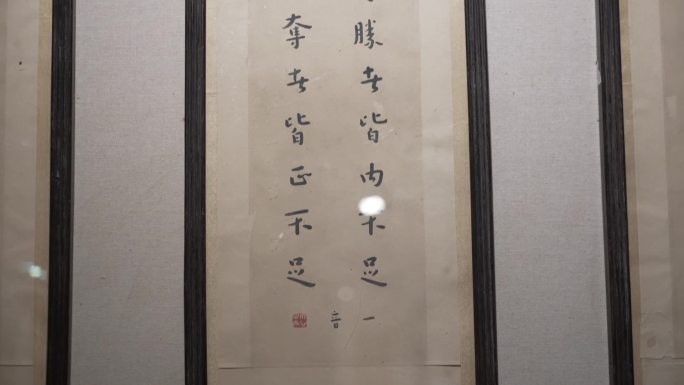 勝者皆内不足
奪者皆正不足
一音